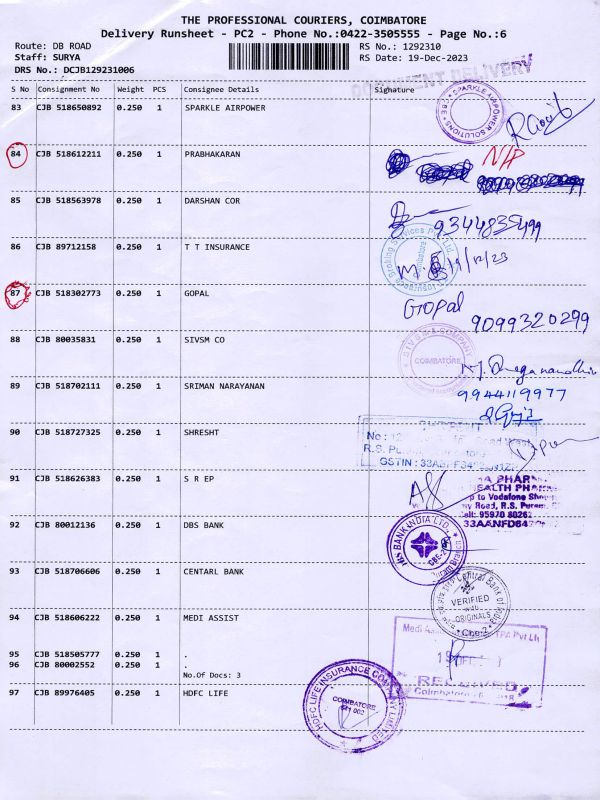 THE PROFESSIONAL COURIERS, COIMBATORE
Delivery Runsheet - PC2 - Phone No.:0422-3505555 - Page No.:6
Route: DB ROAD
Staff: SURYA
DRS No.: DCJB129231006
RS No.: 1292310
RS Date: 19-Dec-2023
DOCUMENT DELIVERY
S No Consignment No Weight PCS Consignee Details Signature
83 CJB 518650892 0.250 1 SPARKLE AIRPOWER
SPARKLE AIRPOWER SOLUTIONS * CBE *
84 CJB 518612211 0.250 1 PRABHAKARAN
N/A
85 CJB 518563978 0.250 1 DARSHAN COR
9344835499
86 CJB 89712158 0.250 1 T T INSURANCE
Insurance Broking Services Pvt. Ltd.
19/12/23
87 CJB 518302773 0.250 1 GOPAL
Gopal
9099320299
88 CJB 80035831 0.250 1 SIVSM CO
& COMPANY
COIMBATORE
89 CJB 518702111 0.250 1 SRIMAN NARAYANAN
9944119977
90 CJB 518727325 0.250 1 SHRESHT
No : 12
Road West
R.S. Puram
GSTIN : 33A
91 CJB 518626383 0.250 1 S R EP
PHARM
HEALTH PHARM
p to Vodafone Shop
Road, R.S. Puram
Cell: 95970 8026
33AANFD647
92 CJB 80012136 0.250 1 DBS BANK
BANK INDIA LTD.
93 CJB 518706606 0.250 1 CENTARL BANK
Central Bank of India
VERIFIED
with
ORIGINALS
94 CJB 518606222 0.250 1 MEDI ASSIST
Medi Assist TPA Pvt Ltd
RECEIVED
Coimbatore
95 CJB 518505777 0.250 1 .
96 CJB 80002552 0.250 1 .
No.Of Docs: 3
97 CJB 89976405 0.250 1 HDFC LIFE
HDFC LIFE INSURANCE COMPANY LIMITED
COIMBATORE